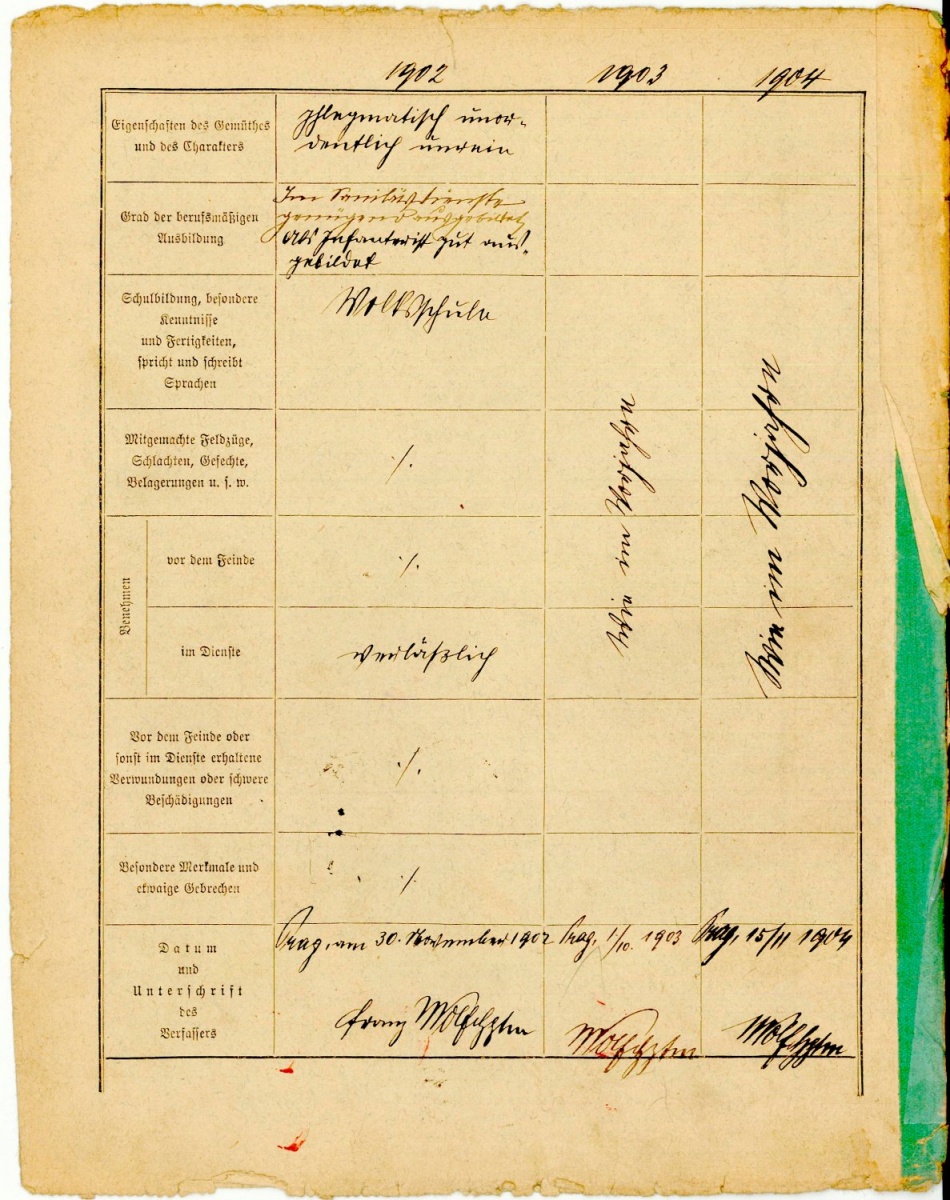 1902 1903 1904
Eigenschaften des Gemüthes
und des Charakters
phlegmatisch unor-
dentlich unrein
Grad der berufsmäßigen
Ausbildung
Im Sanitätsdienste
genügend ausgebildet
Als Infanterist gut aus-
gebildet
Schulbildung, besondere
Kenntnisse
und Fertigkeiten,
spricht und schreibt
Sprachen
Volksschule
Mitgemachte Feldzüge,
Schlachten, Gefechte,
Belagerungen u. s. w.
./.
Benehmen
vor dem Feinde
./.
im Dienste
verläßlich
Wie im Vorjahre
Wie im Vorjahre
Vor dem Feinde oder
sonst im Dienste erhaltene
Verwundungen oder schwere
Beschädigungen
./.
Besondere Merkmale und
etwaige Gebrechen
./.
Datum
und
Unterschrift
des
Verfassers
Prag, am 30. November 1902
Franz
Prag, 1/10. 1903
Prag, 15/11 1904